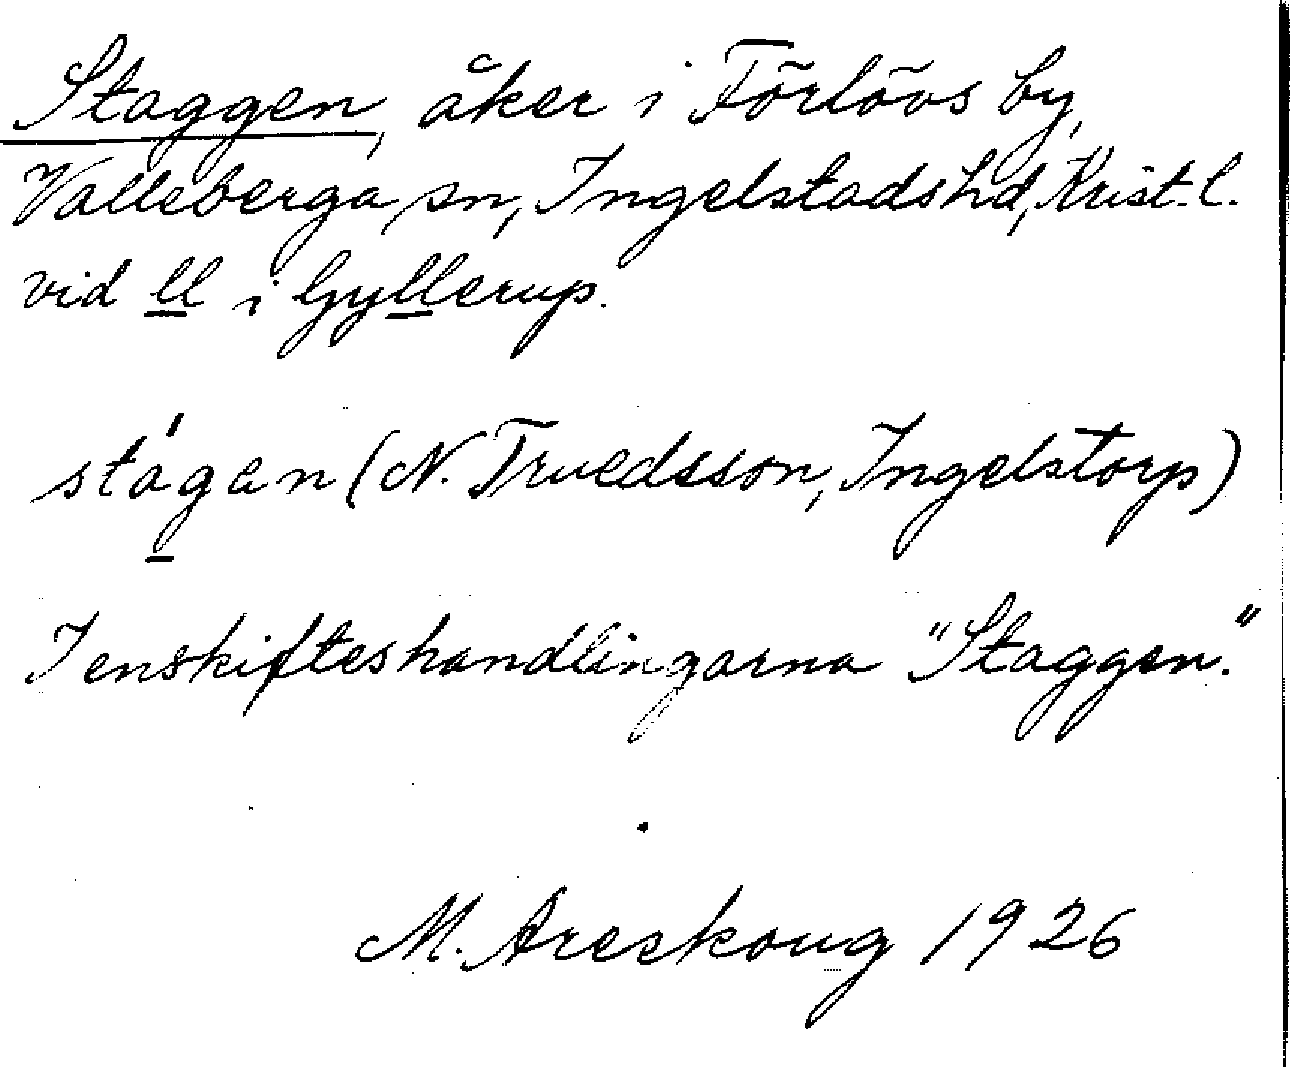 Staggen, åker i Förlövs by,
Valleberga sn, Ingelstads hd, Krist. l.
vid ll i Gyllerup.
stágan (N. Truedsson, Ingelstorp)
I enskifteshandlingarna "Staggen."
M. Areskoug 1926